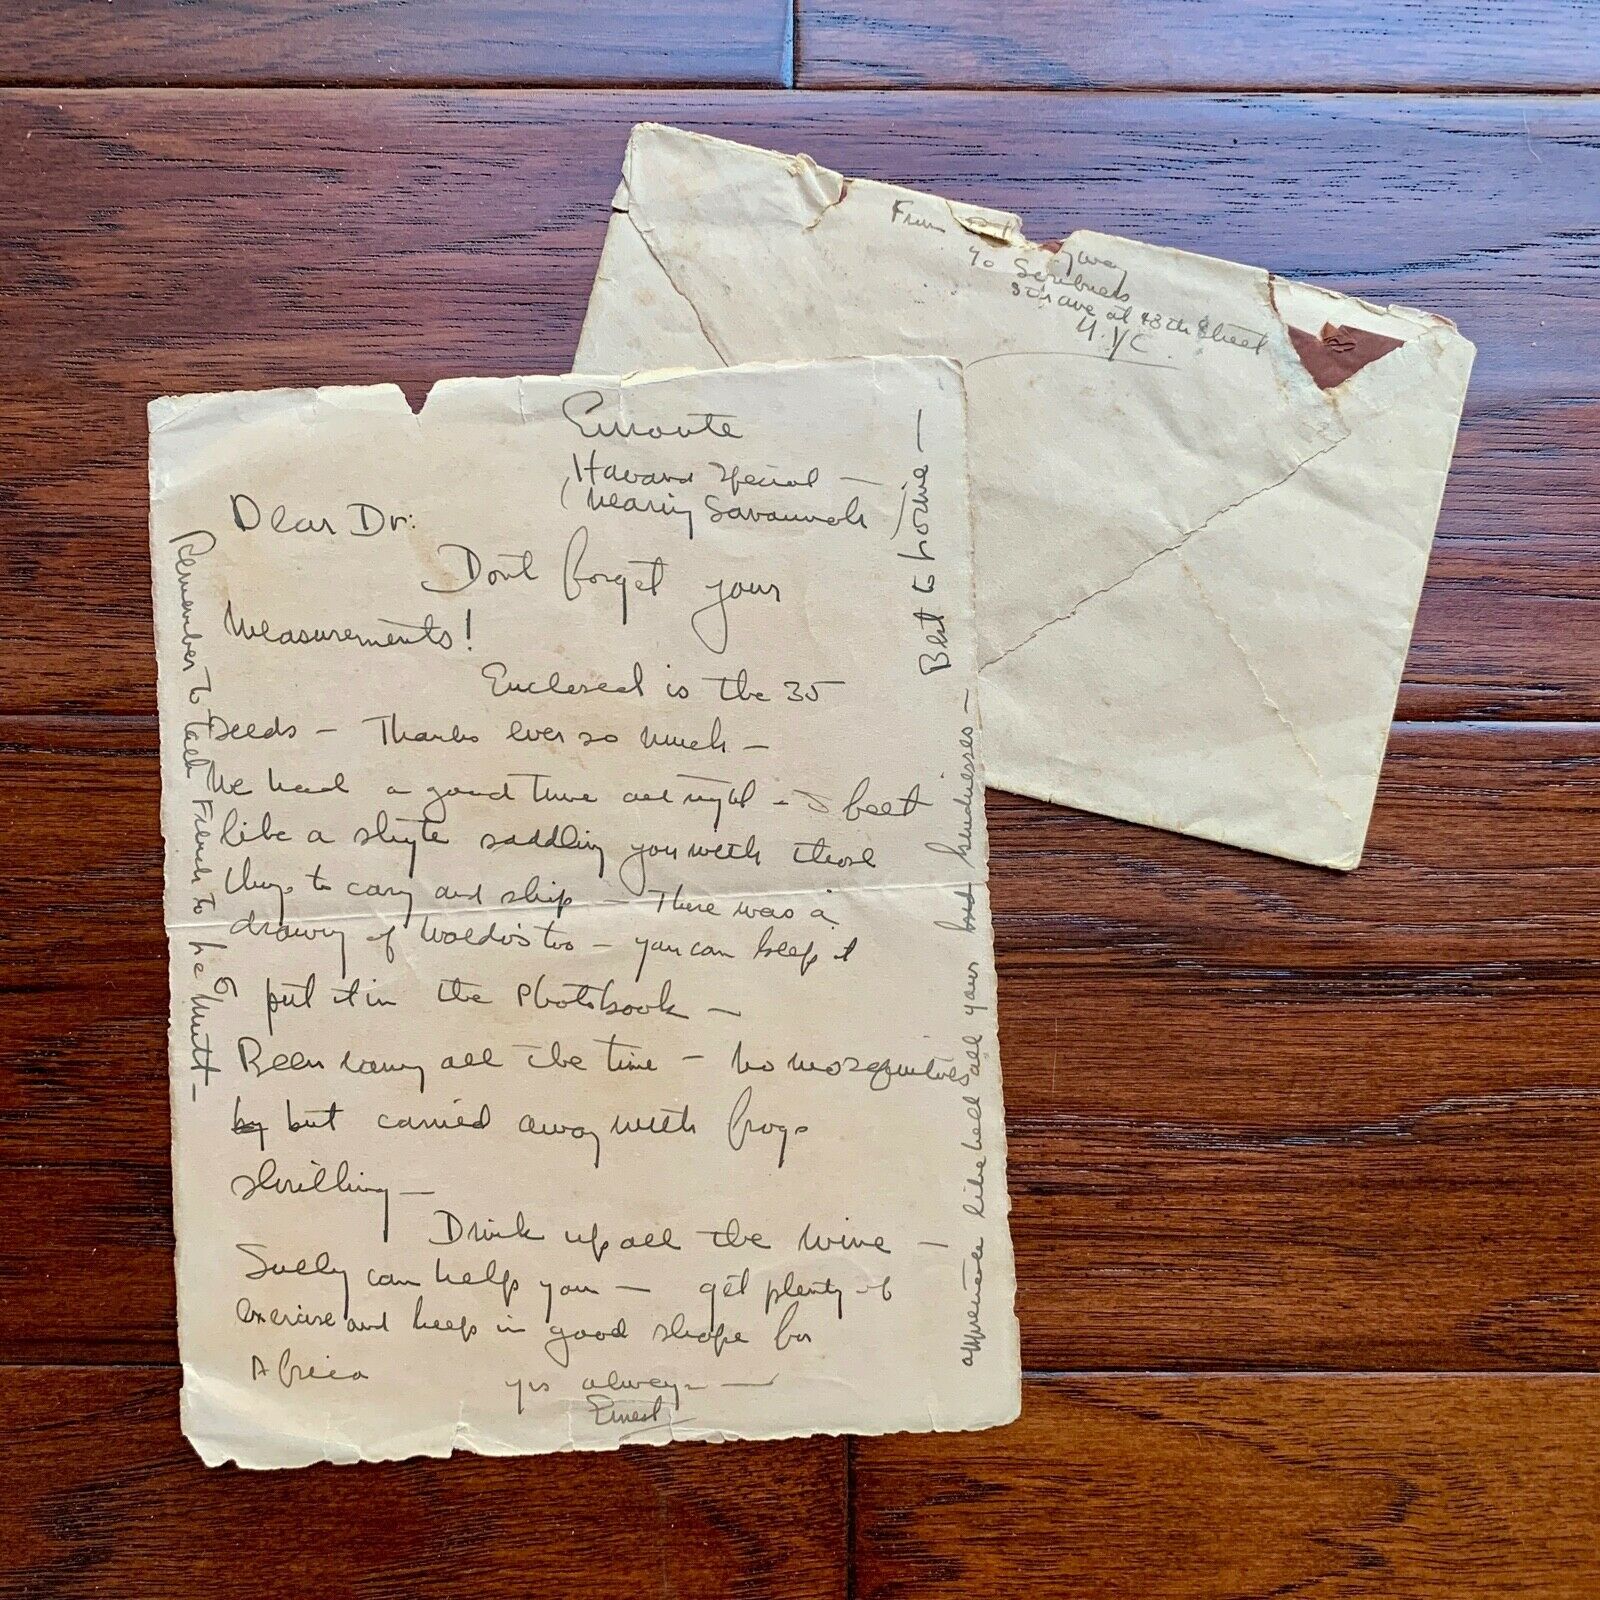 From
way
c/o Scribners
5th ave at 48th Street
N.Y.C.
Enroute
Havana Special —
(nearing Savannah)
Dear Dr:
Dont forget your
measurements!
Enclosed is the 35
Seeds — Thanks ever so much —
We had a good time all right — I feel
like a shyte saddling you with those
things to carry and ship — There was a
drawing of Waldo's too — you can keep it
or put it in the Photobook —
Been rainy all the time — no mosquitoes
by but carried away with frogs
shrilling —
Drink up all the wine —
Sully can help you — get plenty of
exercise and keep in good shape for
Africa
yrs always —
Ernest
appreciate like hell all your kindnesses —
Best to
Remember to talk French to the Mutt —